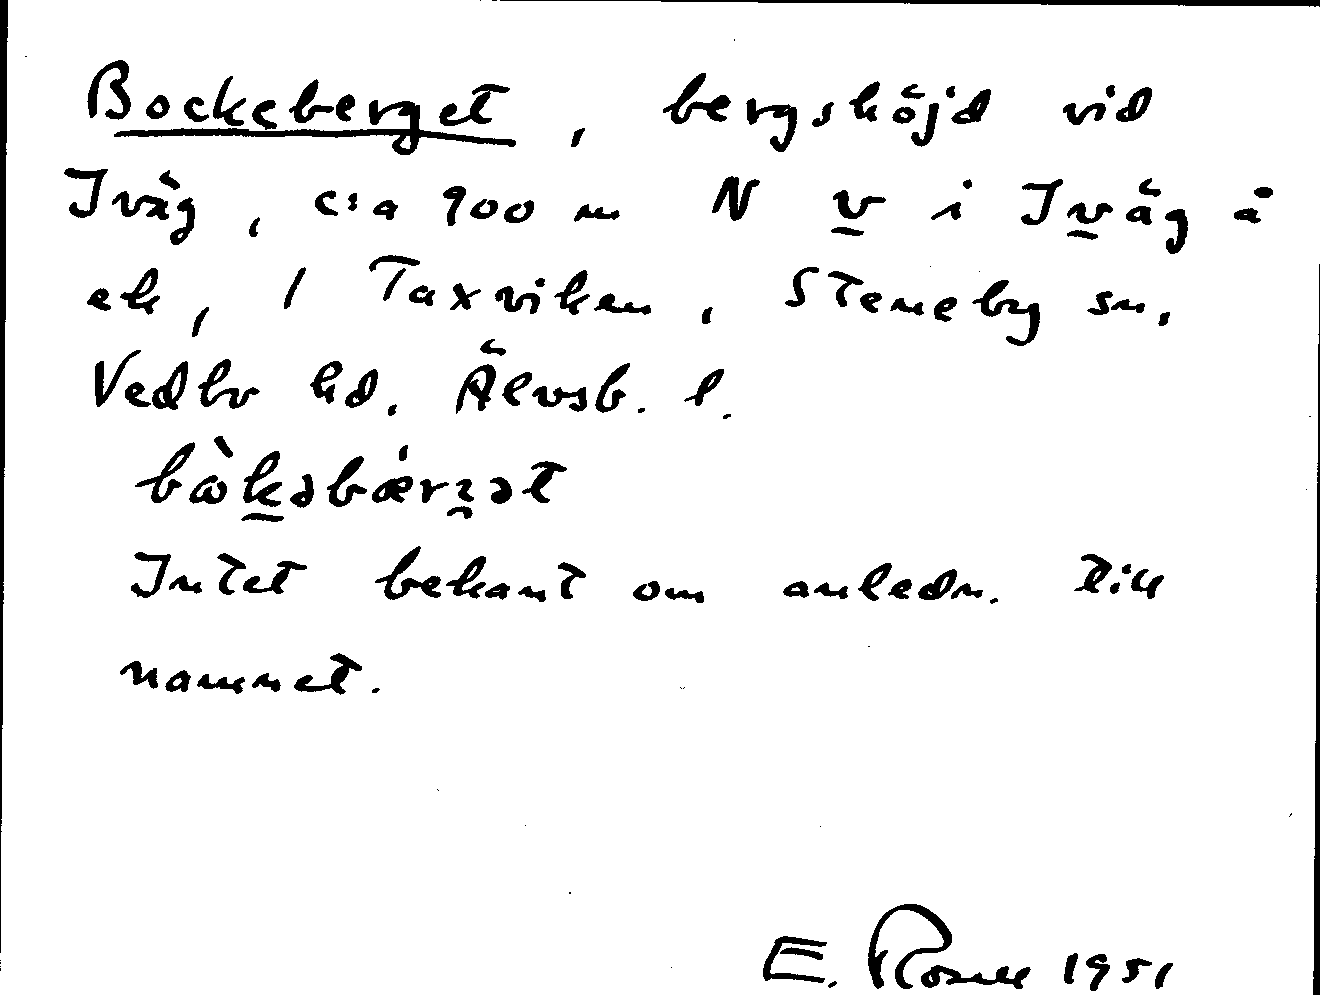 Bockeberget, bergshöjd vid
Iväg, c:a 900 m N v i Iväg å
ek, / Taxviken, Steneby sn,
Vedbo hd. Älvsb. l.
bωkəbærgət
Intet bekant om anledn. till
namnet.
E. 1951